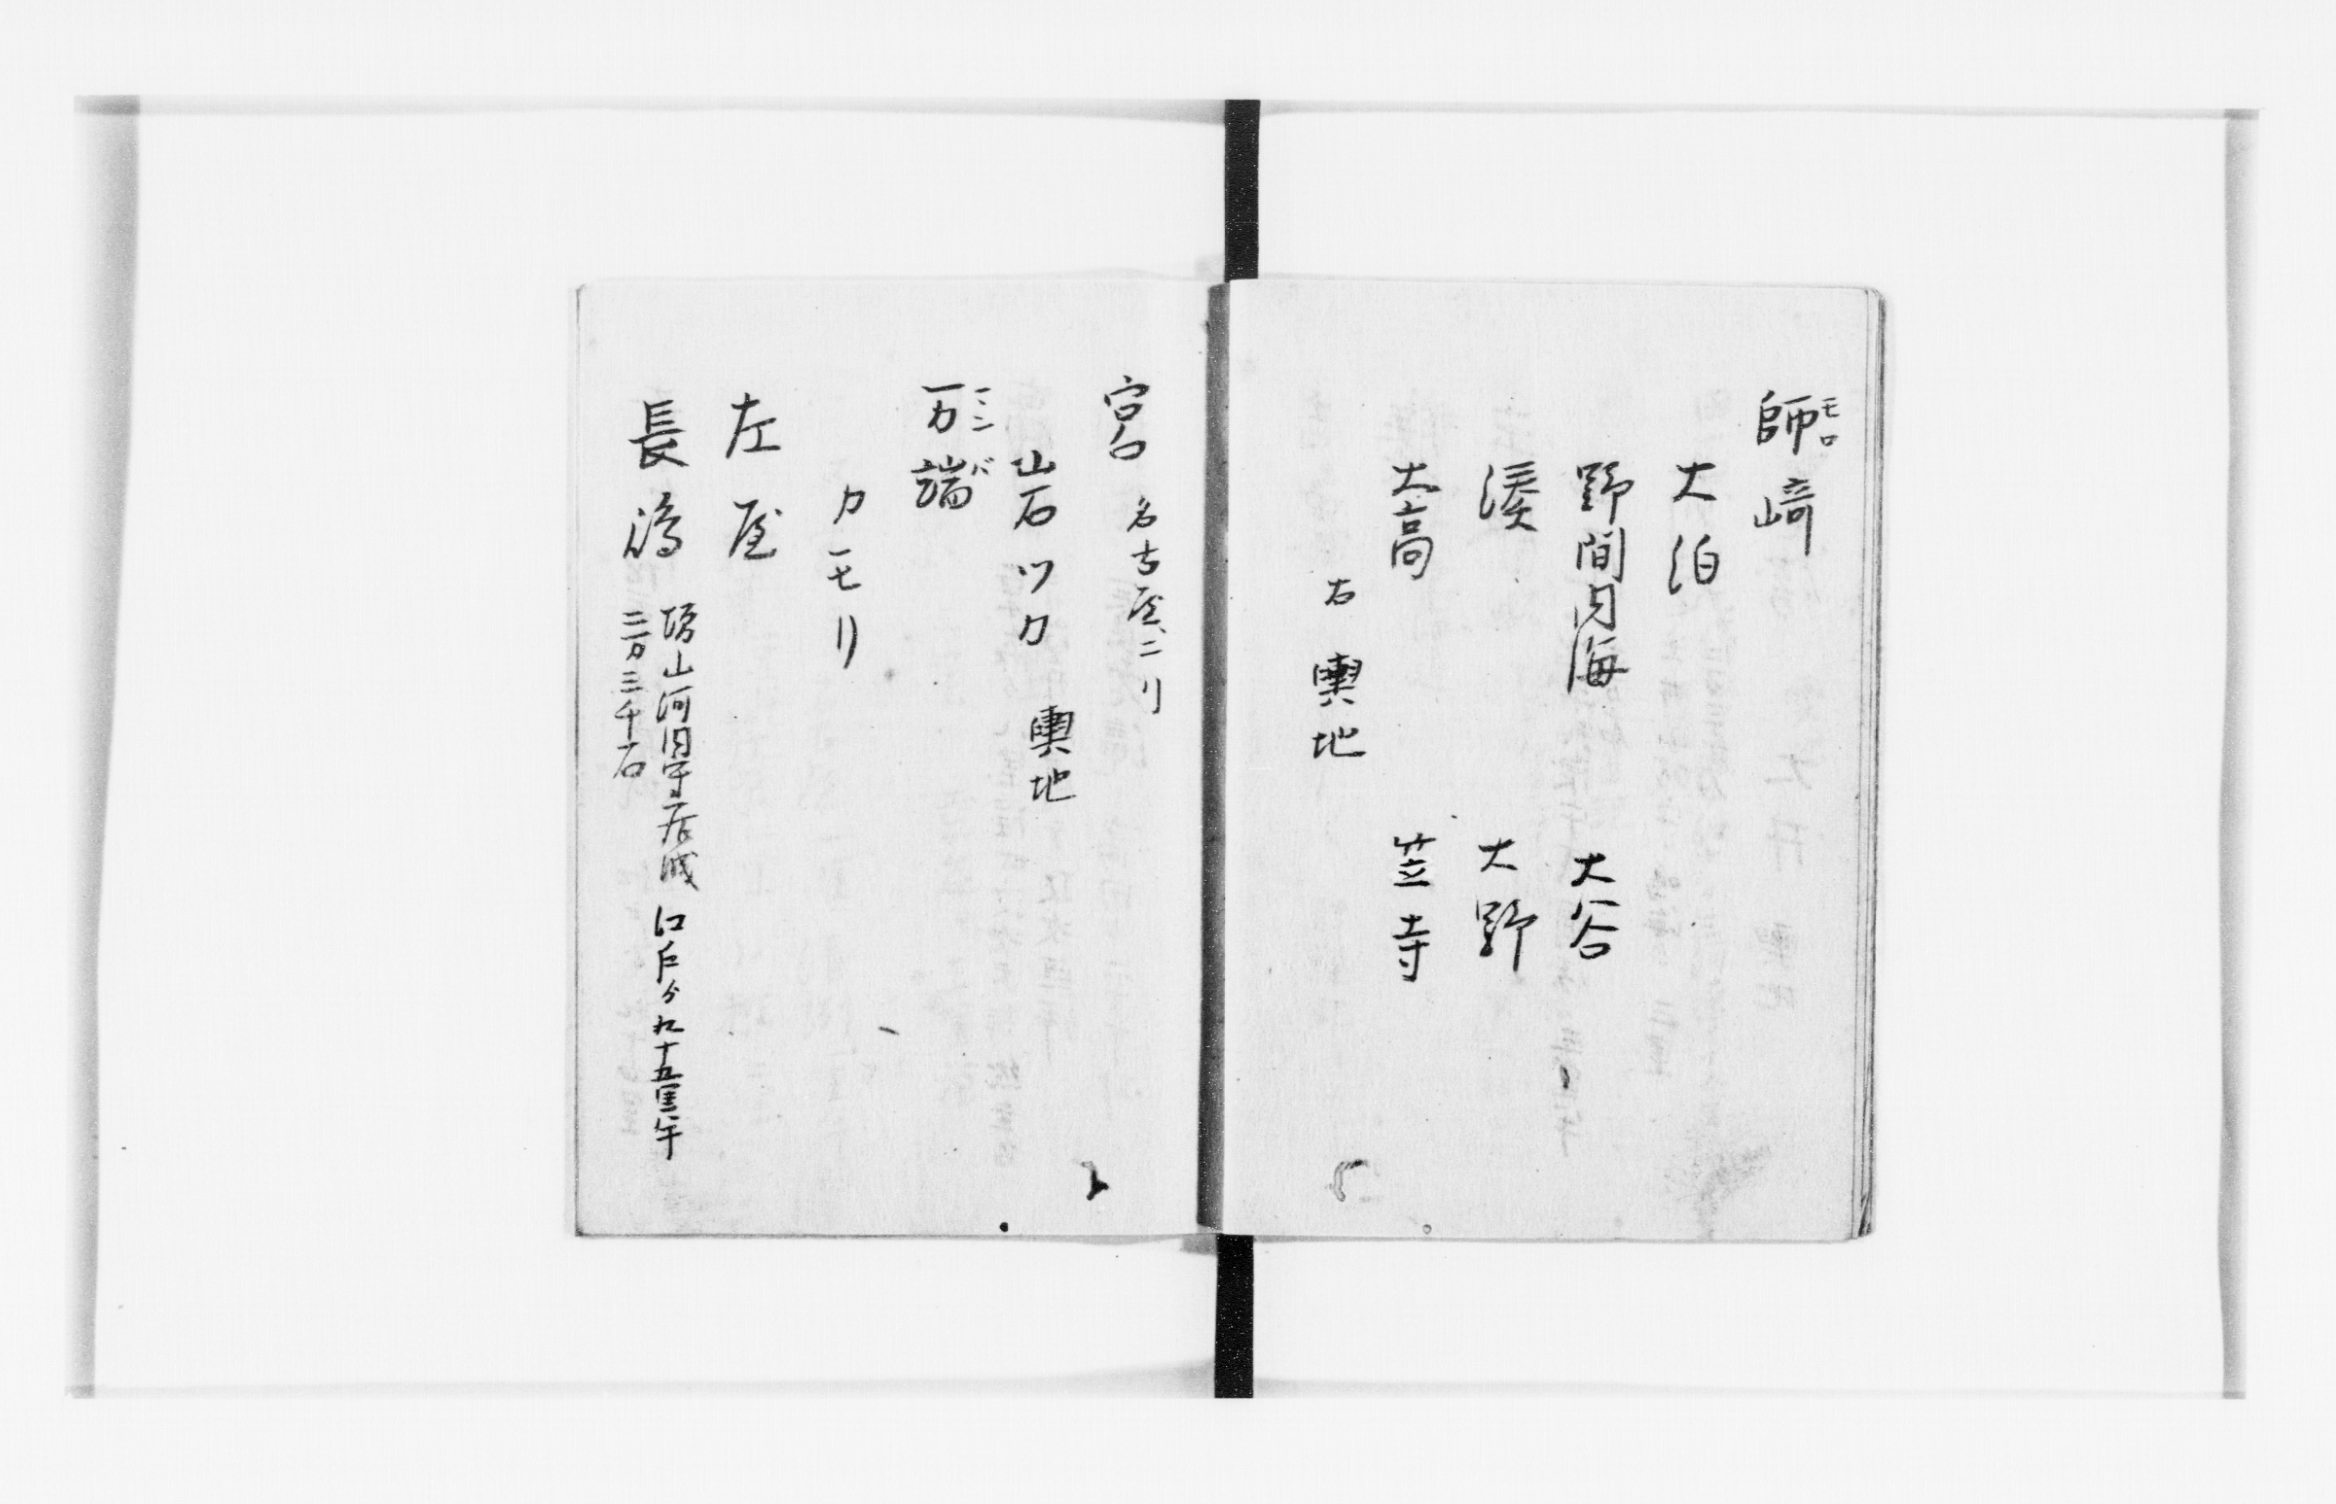 師﨑
モロ
大泊
野間内海 大谷
湊 大野
大高 笠寺
右 輿地
宮 名古屋二リ
岩ツカ 輿地
万端
マンバ
カモリ
左屋
長嶋 増山河内守居城 江戸ゟ九十五里午
二万三千石